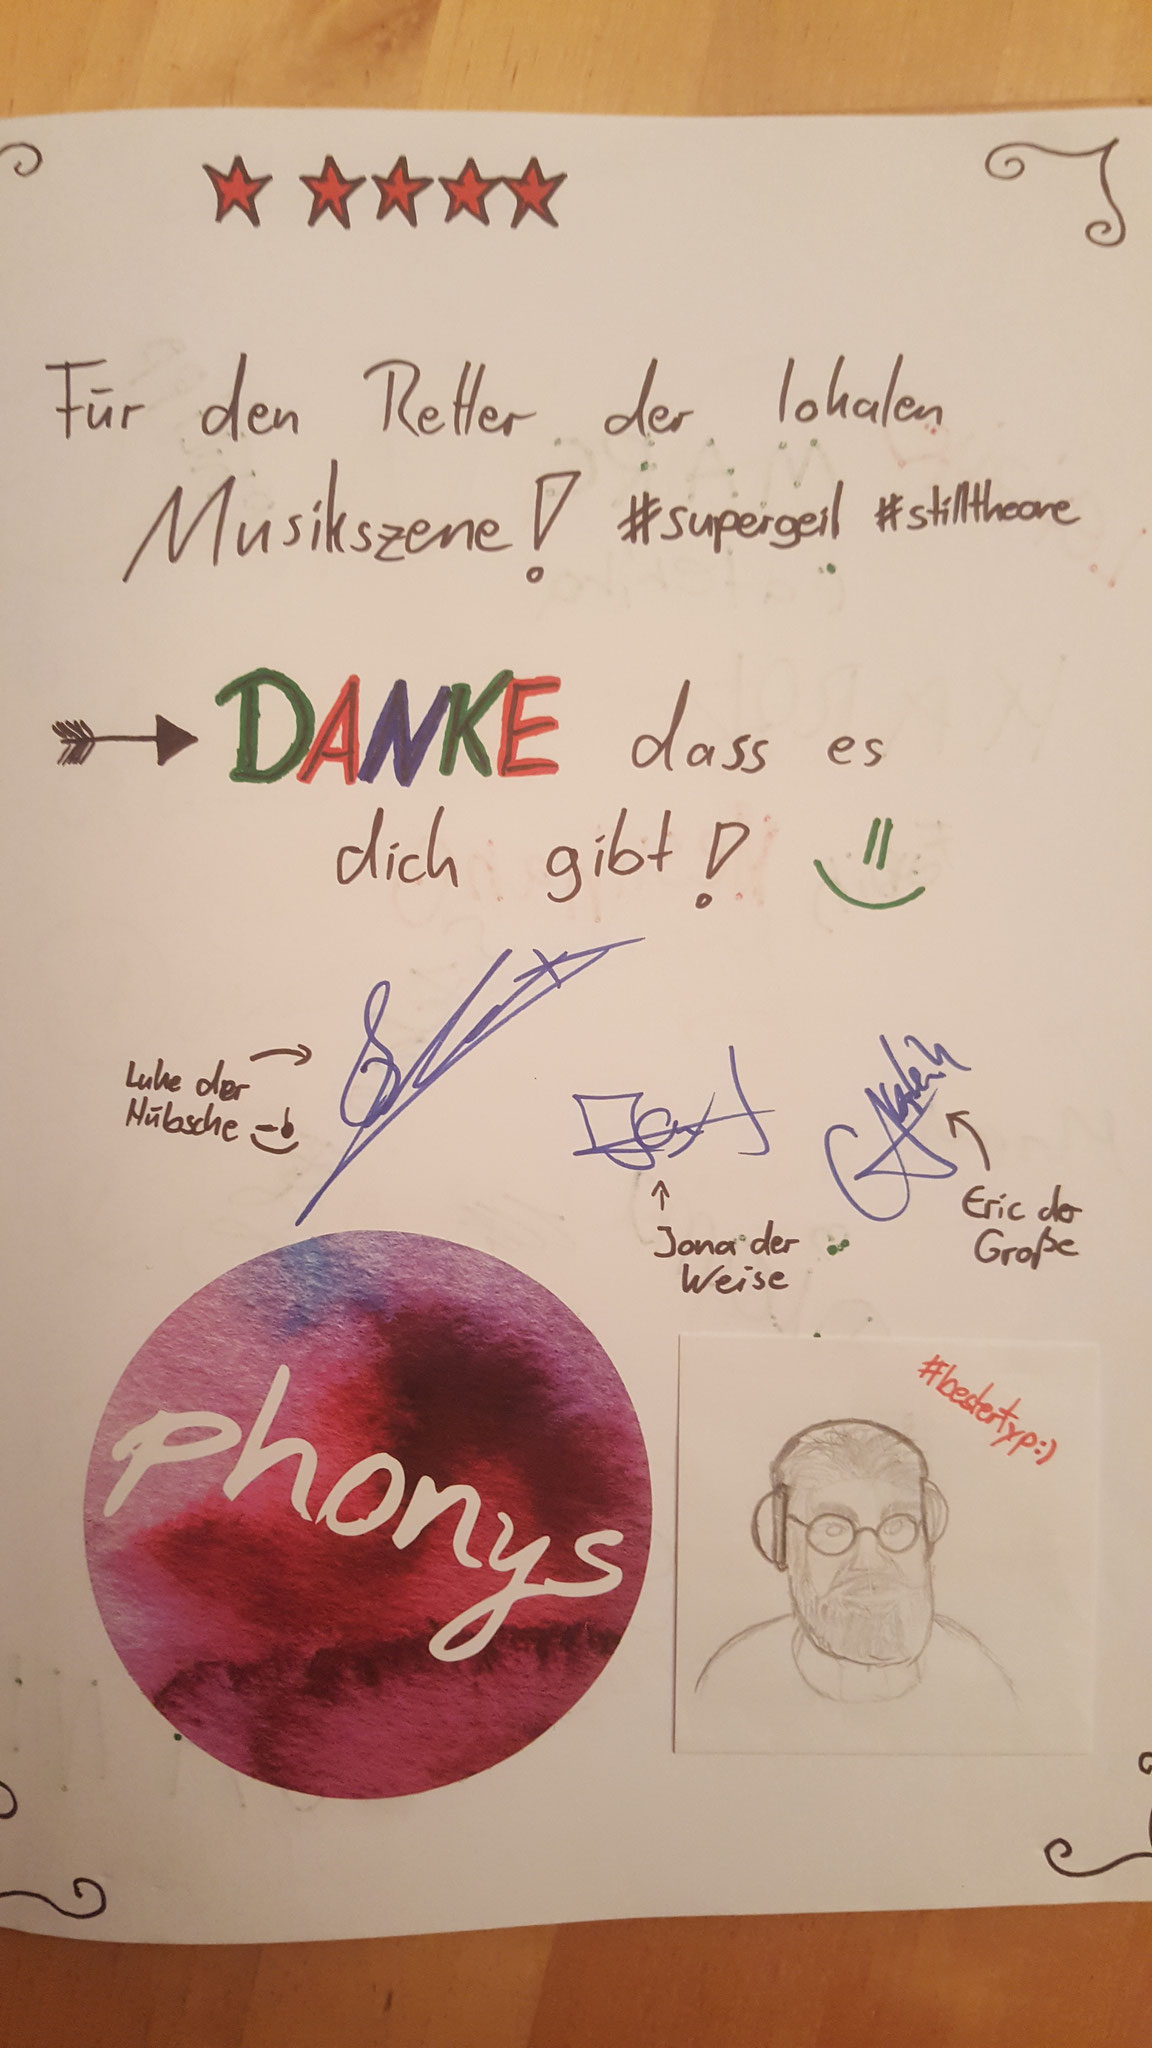 Für den Retter der lokalen
Musikszene! #supergeil #stilltheone
DANKE dass es
dich gibt!
Luke der
Hübsche
Jona der
Weise
Eric der
Große
phonys
#bestertyp:)